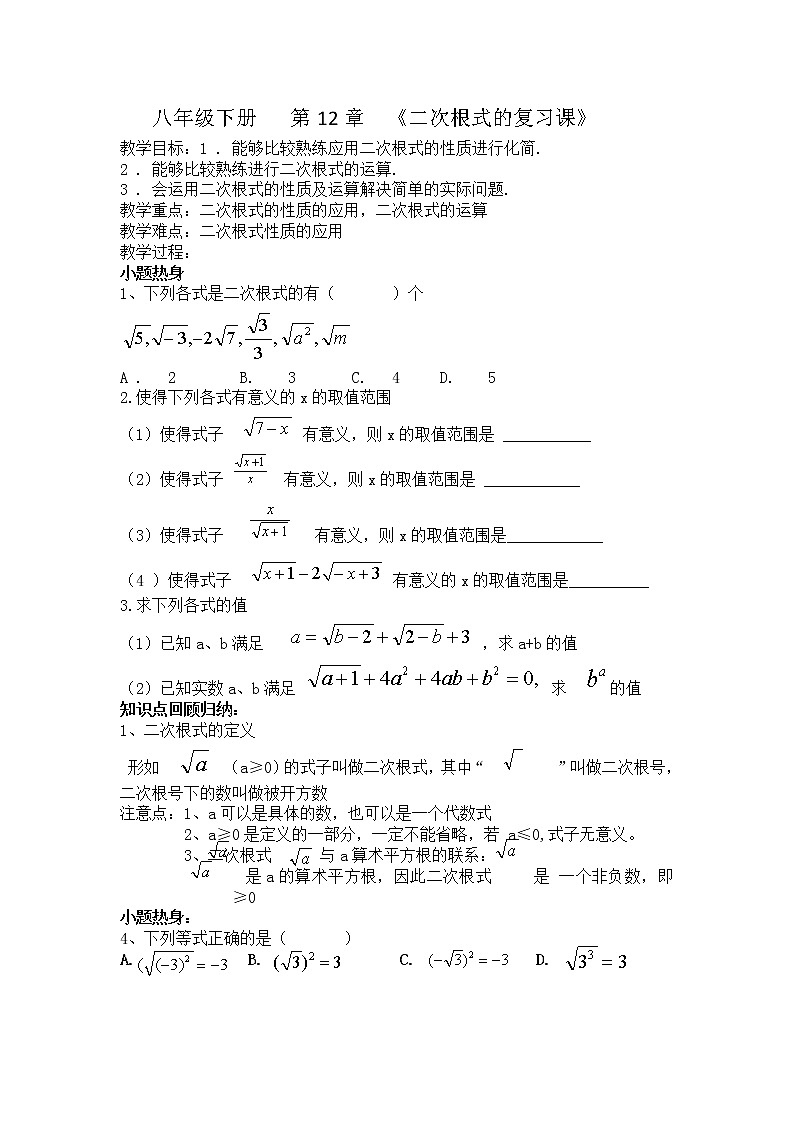 八年级下册 第12章 《二次根式的复习课》
教学目标:1 . 能够比较熟练应用二次根式的性质进行化简.
2 . 能够比较熟练进行二次根式的运算.
3 . 会运用二次根式的性质及运算解决简单的实际问题.
教学重点:二次根式的性质的应用,二次根式的运算
教学难点:二次根式性质的应用
教学过程:
小题热身
1、下列各式是二次根式的有( )个
√5,√-3,-2√7,√3/3,√a²,√m
A . 2 B. 3 C. 4 D. 5
2.使得下列各式有意义的x的取值范围
(1)使得式子 √7-x 有意义,则x的取值范围是 ___________
(2)使得式子 √x+1/x 有意义,则x的取值范围是 ____________
(3)使得式子 x/√x+1 有意义,则x的取值范围是____________
(4 )使得式子 √x+1-2√-x+3 有意义的x的取值范围是__________
3.求下列各式的值
(1)已知a、b满足 a=√b-2+√2-b+3 ,求a+b的值
(2)已知实数a、b满足 √a+1+4a²+4ab+b²=0, 求 bᵃ 的值
知识点回顾归纳:
1、二次根式的定义
形如 √a (a≥0)的式子叫做二次根式,其中“ √ ”叫做二次根号,
二次根号下的数叫做被开方数
注意点:1、a可以是具体的数,也可以是一个代数式
2、a≧0是定义的一部分,一定不能省略,若 a≤0,式子无意义。
3、二次根式 √a 与a算术平方根的联系:
√a 是a的算术平方根,因此二次根式 √a 是 一个非负数,即
√a ≥0
小题热身:
4、下列等式正确的是( )
A.(√(-3)²=-3 B. (√3)²=3 C. (-√3)²=-3 D. √3³=3